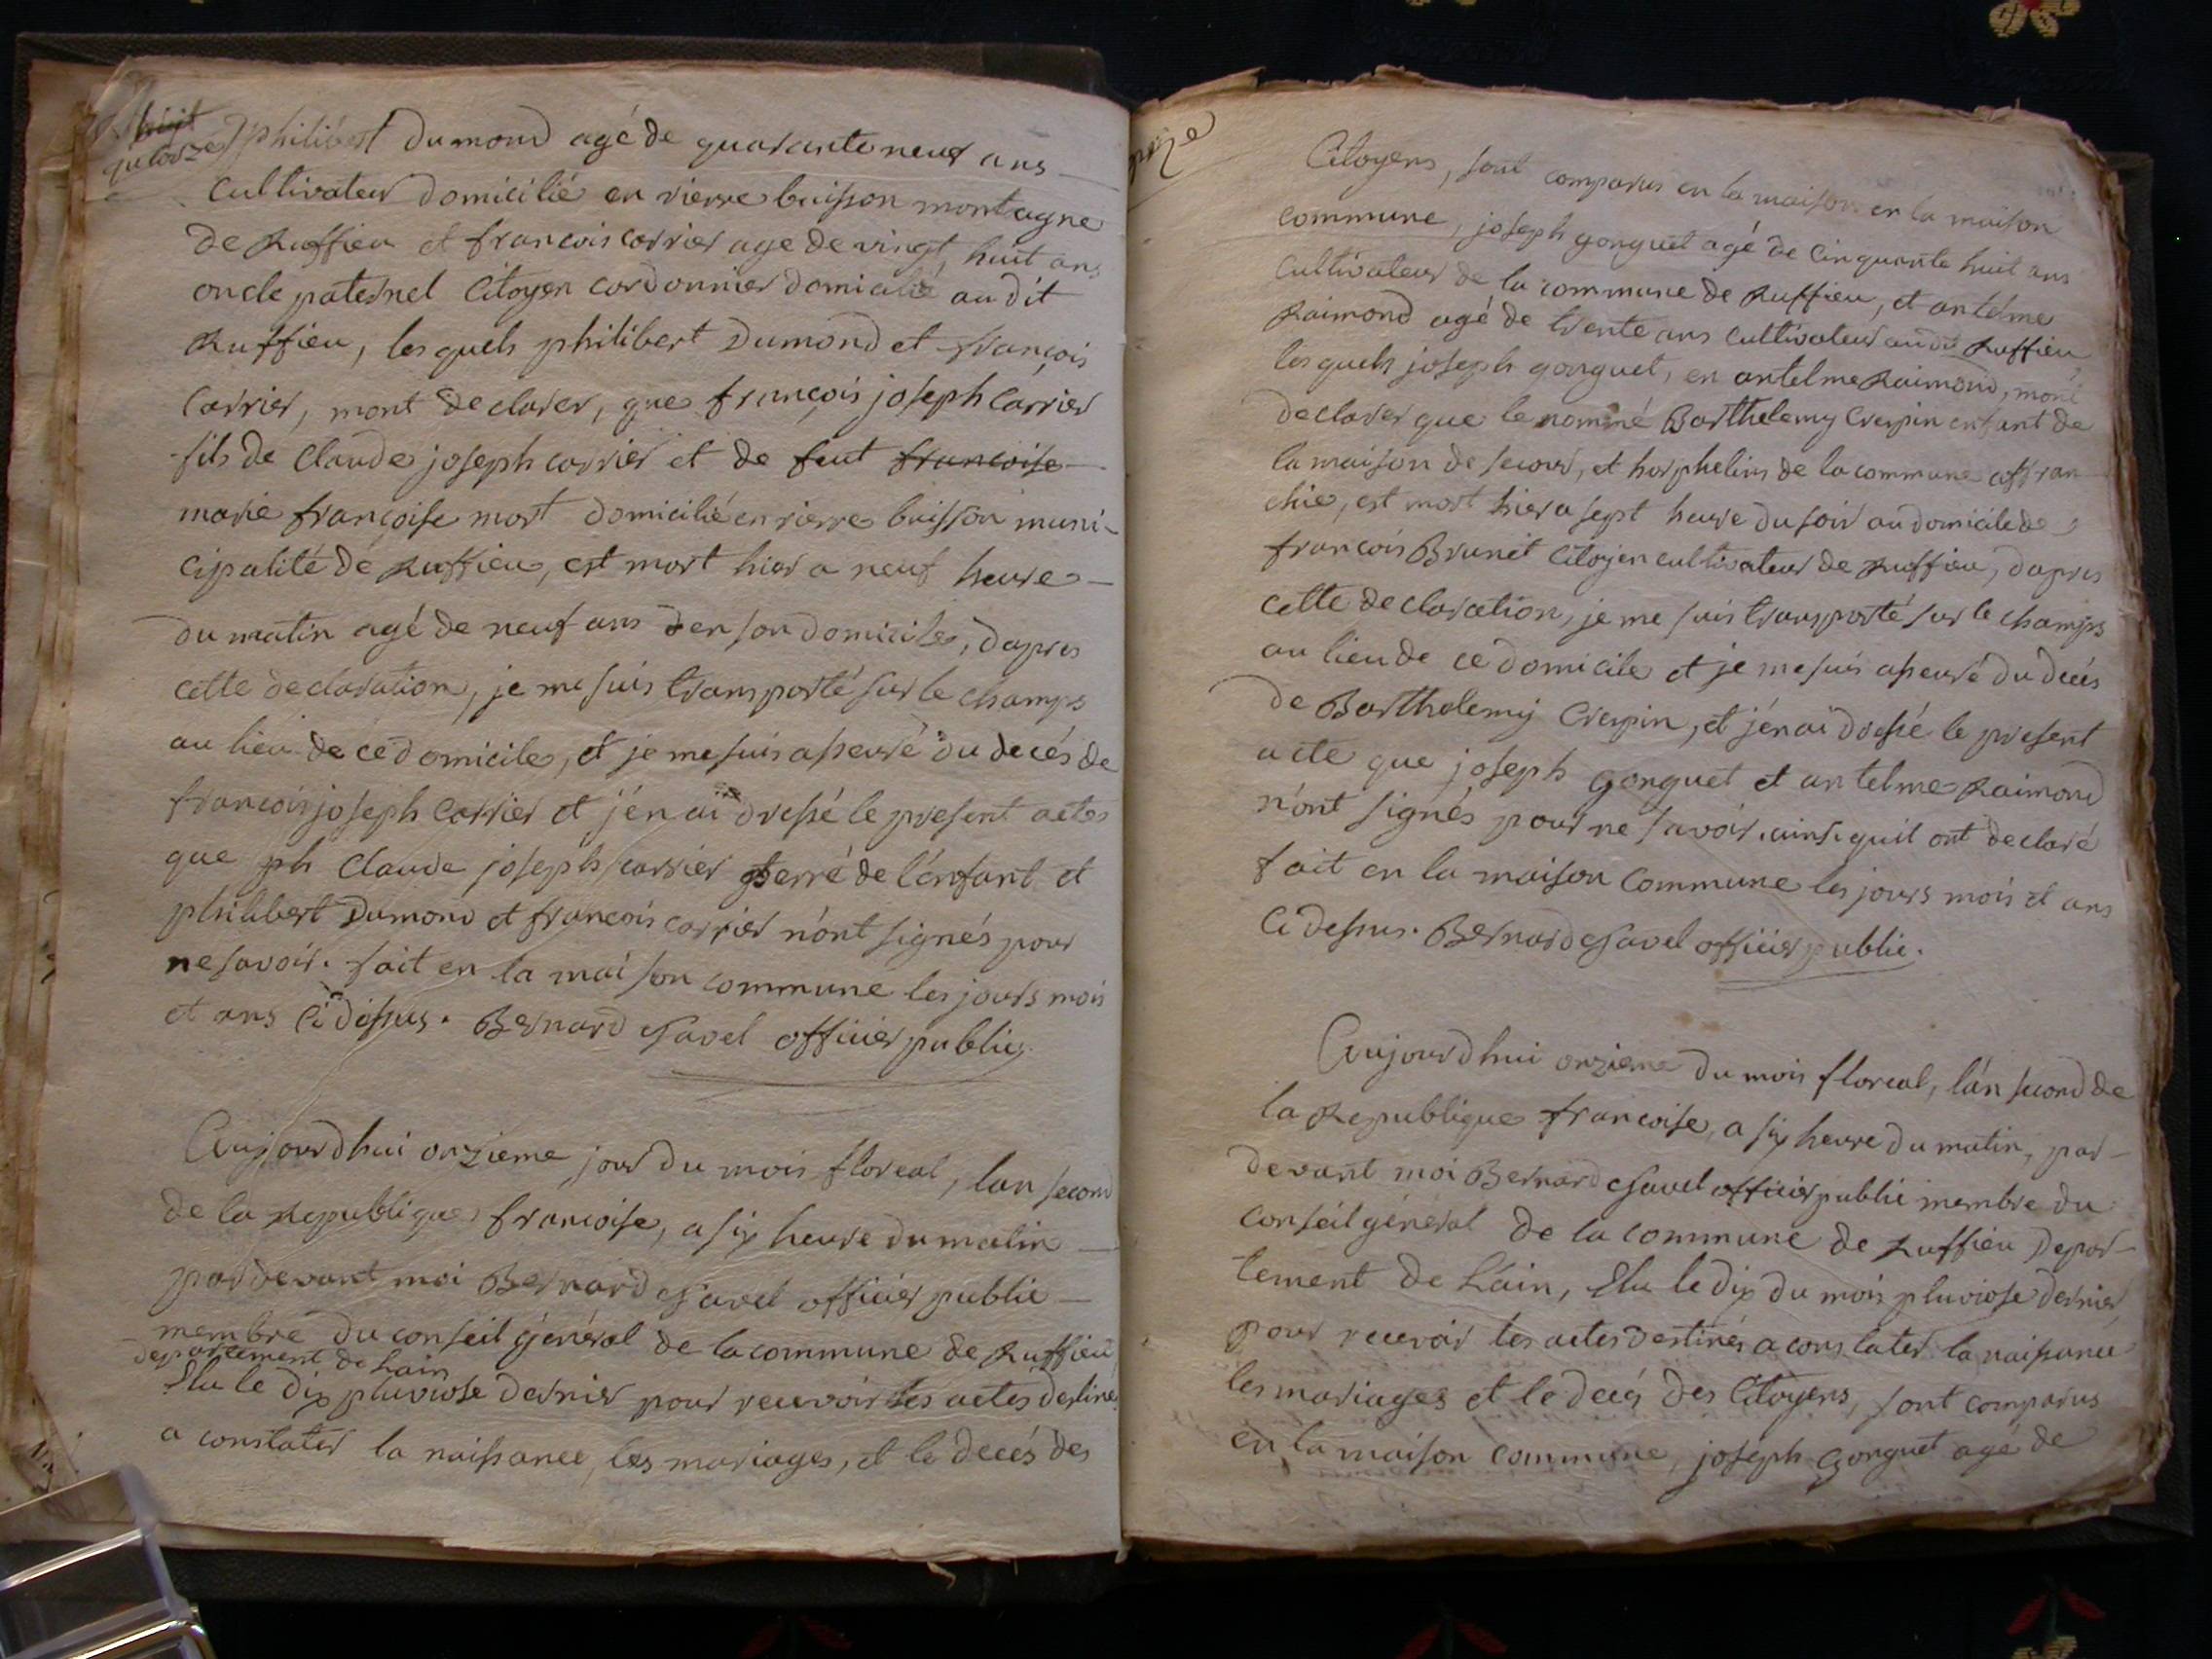 huit
quatorze
philibert dumond agé de quarante neuf ans
cultivateur domicilié en vierre buisson montagne
de Ruffieu et francois carrier age de vingt, huit ans
oncle paternel Citoyen cordonnier domicilié au dit
Ruffieu, les quels philibert Dumond et françois
Carrier, mont declarer, que françois joseph Carrier
fils de Claude joseph carrier et de feut francoise
marie françoise mort domicilié en rierre buisson muni-
cipalité de Ruffieu, est mort hier a neuf heure
du matin agé de neuf ans d en son domicile, dapres
cette declaration, je me suis transporté sur le champs
au lieu de ce domicile, et je me suis asseuré du decés de
francois joseph Carrier et j'én ai dressé le present acte
que ph Claude joseph carrier perré de l'énfant et
philibert Dumond et francois carrier n'ónt signés pour
ne savoir. fait en la mai son commune les jours mois
et ans Ci dessus. Bernard Savel officier public.
Aujourdhui onzieme jour du mois floreal, lan second
de la Republique françoise, a six heure du matin
par devant moi Bernard Savel officier public
membre du conseil général de la commune de Ruffieu
departement de Lain
Elu le dix pluviose dernier pour recevoir les actes destinés
a constater la naissance, les mariages, et le decés des
onze
Citoyens, sont comparus en la maison en la maison
commune, joseph gonguet agé de Cinquante huit ans
Cultivateur de la commune de Ruffieu, et antelme
Raimond agé de trente ans cultivateur audit Ruffieu
les quels joseph gonguet, en antelme Raimond, mont
declarer que le nommé Barthelemy Crespin enfant de
la maison de secour, et horphelins de la commune affran
chie, est mort hier a sept heure du soir au domicile de
françois Brunet Citoyen cultivateur de Ruffieu, dapres
cette declaration, je me suis transporté sur le champs
au lieu de ce domicile et je me suis asseuré du decés
de Barthelemy Crespin, et j'énai dressé le present
acte que joseph gonguet et antelme Raimond
n'ont signés pour ne savoir, ainsi quil ont declaré
fait en la maison Commune les jours mois et ans
Ci dessus. Bernard Savel officier public.
Aujourdhui onzieme du mois floreal, l'án second de
la Republique françoise, a six heure du matin, par-
devant moi Bernard Savel officier public membre du
conseil général de la commune de Ruffieu Depar-
tement de L'ain, Elu le dix du mois pluviose dernier
pour recevoir les actes destinés a constater la naissance
les mariages et le decés des Citoyens, sont comparus
en la maison commune, joseph Gonguet agé de